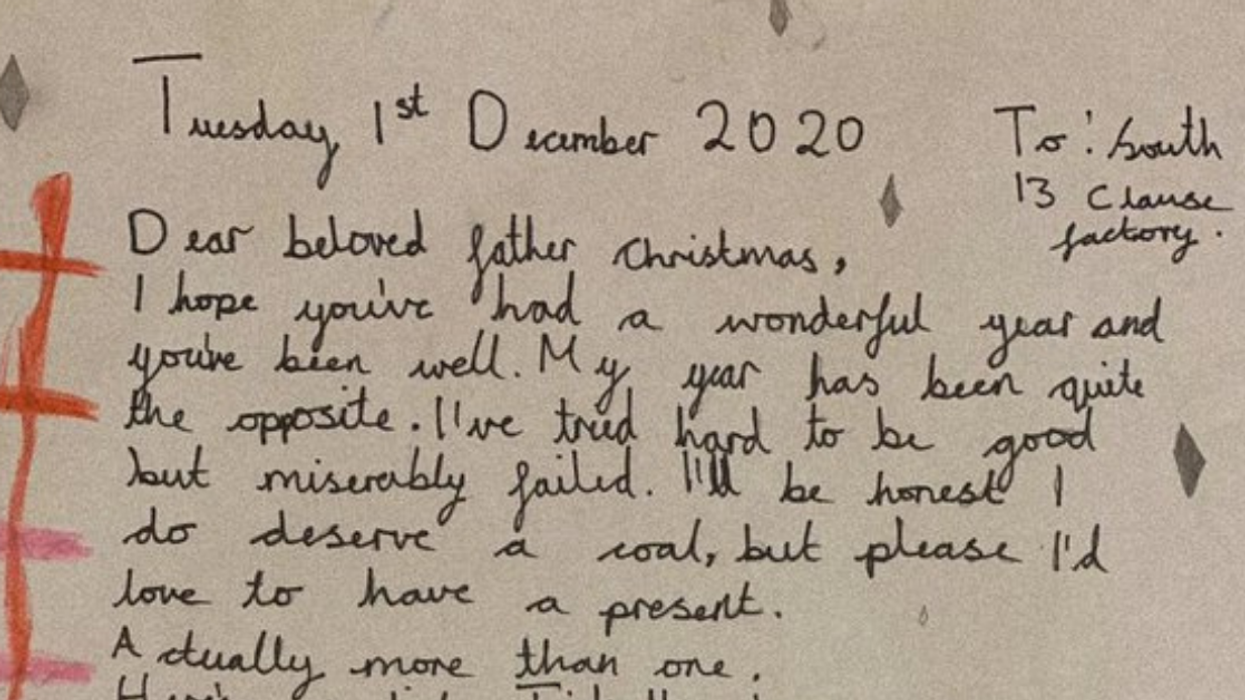 Tuesday 1st December 2020
To: South
13 Clause
factory.
Dear beloved father Christmas,
I hope you've had a wonderful year and
you've been well. My year has been quite
the opposite. I've tried hard to be good
but miserably failed. I'll be honest I
do deserve a coal, but please I'd
love to have a present.
Actually more than one.